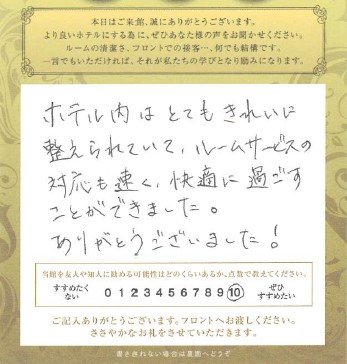 本日はご来館、誠にありがとうございます。
より良いホテルにする為に、ぜひあなた様の声をお聞かせください。
ルームの清潔さ、フロントでの接客…、何でも結構です。
一言でもいただければ、それが私たちの学びとなり励みになります。
ホテル内はとてもきれいに
整えられていて、ルームサービスの
対応も速く、快適に過ごす
ことができました。
ありがとうございました!
当館を友人や知人に勧める可能性はどのくらいあるか、点数で教えてください。
すすめたく
ない
0 1 2 3 4 5 6 7 8 9 10
ぜひ
すすめたい
ご記入ありがとうございます。フロントへお渡しください。
ささやかなお礼をさせていただきます。
書き切れない場合は裏面へどうぞ